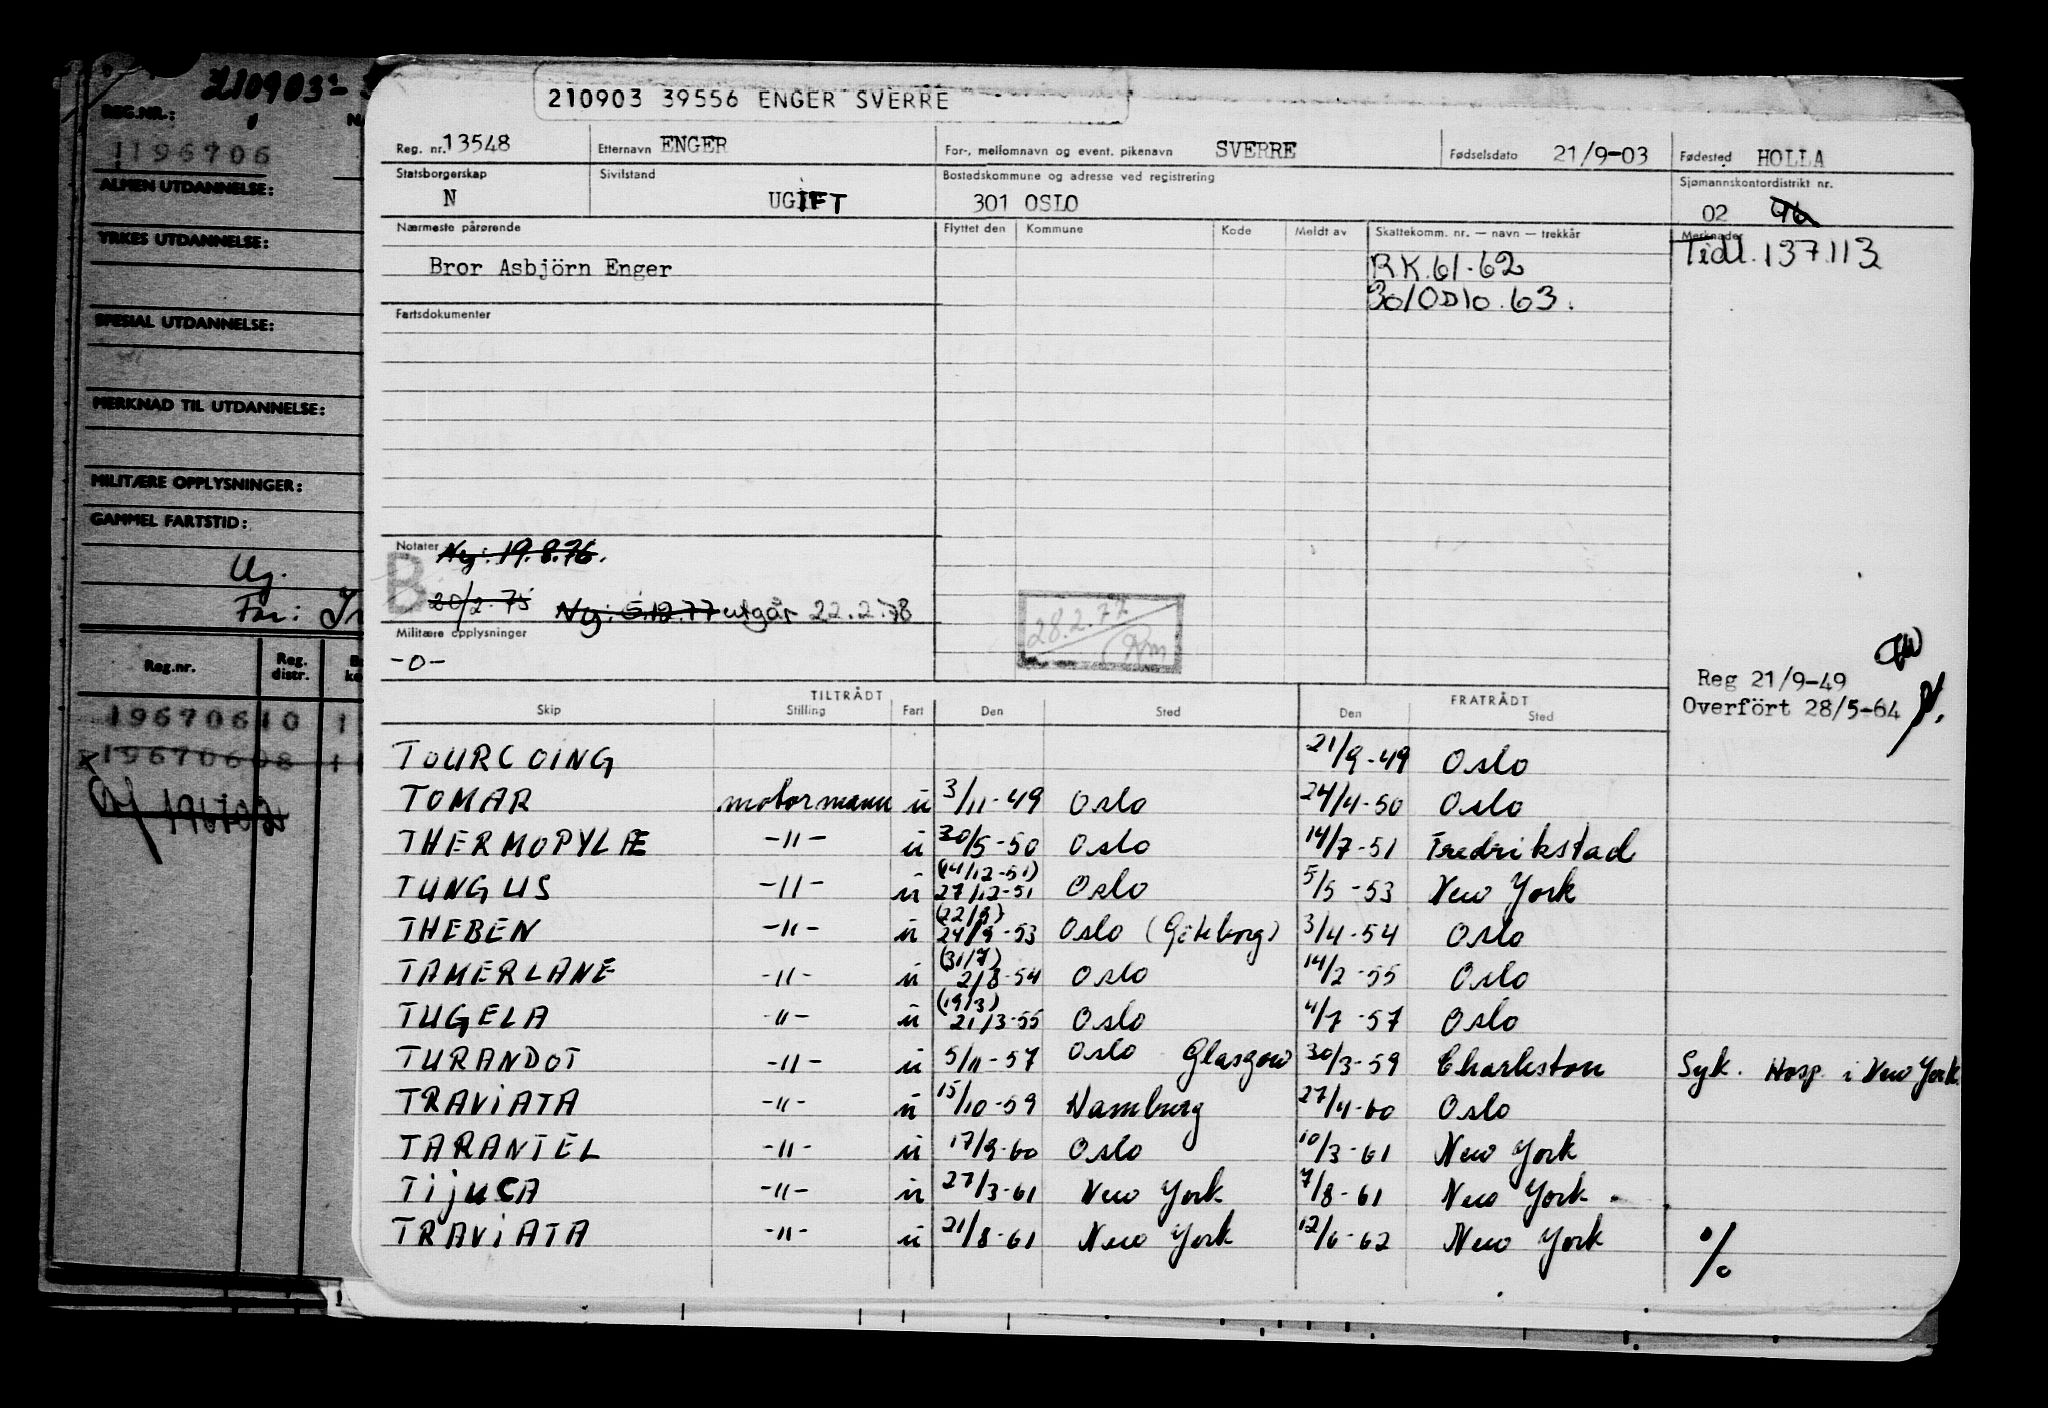 210903
REG.NR.:
1196706
ALMEN UTDANNELSE:
YRKES UTDANNELSE:
SPESIAL UTDANNELSE:
MERKNAD TIL UTDANNELSE:
MILITÆRE OPPLYSNINGER:
GAMMEL FARTSTID:
Ug.
Far:
Reg.nr. Reg. distr.
19670610 1
19670608 11
210903 39556 ENGER SVERRE
Reg. nr. 13548 Etternavn ENGER For-, mellomnavn og event. pikenavn SVERRE Fødselsdato 21/9-03 Fødested HOLLA
Statsborgerskap Sivilstand Bostedskommune og adresse ved registrering Sjømannskontordistrikt nr.
N UGIFT 301 OSLO 02 96
Nærmeste pårørende Flyttet den Kommune Kode Meldt av Skattekomm. nr. — navn — trekkår Merknader
Bror Asbjörn Enger RK.61-62 Tidl. 137.113
301 Oslo. 63.
Fartsdokumenter
Notater Ny: 19.8.76.
B
20/2.75 Ny: 6.12.77 utgår 22.2.78
28.2.77
Militære opplysninger
-0-
Reg 21/9-49
Overfört 28/5-64
TILTRÅDT FRATRÅDT
Skip Stilling Fart Den Sted Den Sted
TOURCOING 21/9-49 Oslo
TOMAR motormann u 3/11-49 Oslo 24/4-50 Oslo
THERMOPYLÆ -"- u 30/5-50 Oslo 14/7-51 Fredrikstad
TUNGUS -"- u (14/12-51) 27/12-51 Oslo 5/5-53 New York
THEBEN -"- u (22/9) 24/9-53 Oslo (Göteborg) 3/4-54 Oslo
TAMERLANE -"- u (31/7) 2/8-54 Oslo 14/2-55 Oslo
TUGELA -"- u (19/3) 21/3-55 Oslo 4/7-57 Oslo
TURANDOT -"- u 5/11-57 Oslo Glasgow 30/3-59 Charleston Syk. Hosp. i New York.
TRAVIATA -"- u 15/10-59 Hamburg 27/4-60 Oslo
TARANTEL -"- u 17/9-60 Oslo 10/3-61 New York
TIJUCA -"- u 27/3-61 New York 7/8-61 New York.
TRAVIATA -"- u 21/8-61 New York 12/6-62 New York %